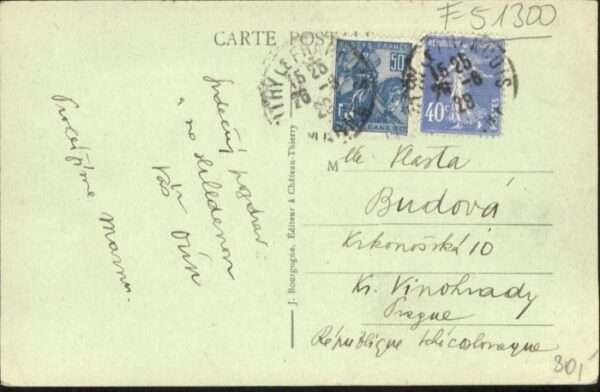 F-51300
CARTE POSTALE
50c
40c
15-25
28
Srdečný pozdrav
a na shledanou
Váš
Prosíme mamu.
J. Bourgogne, Éditeur à Château-Thierry
M lle. Vlasta
Budová
Krkonošská 10
Kr. Vinohrady
Prague
République tchécoslovaque